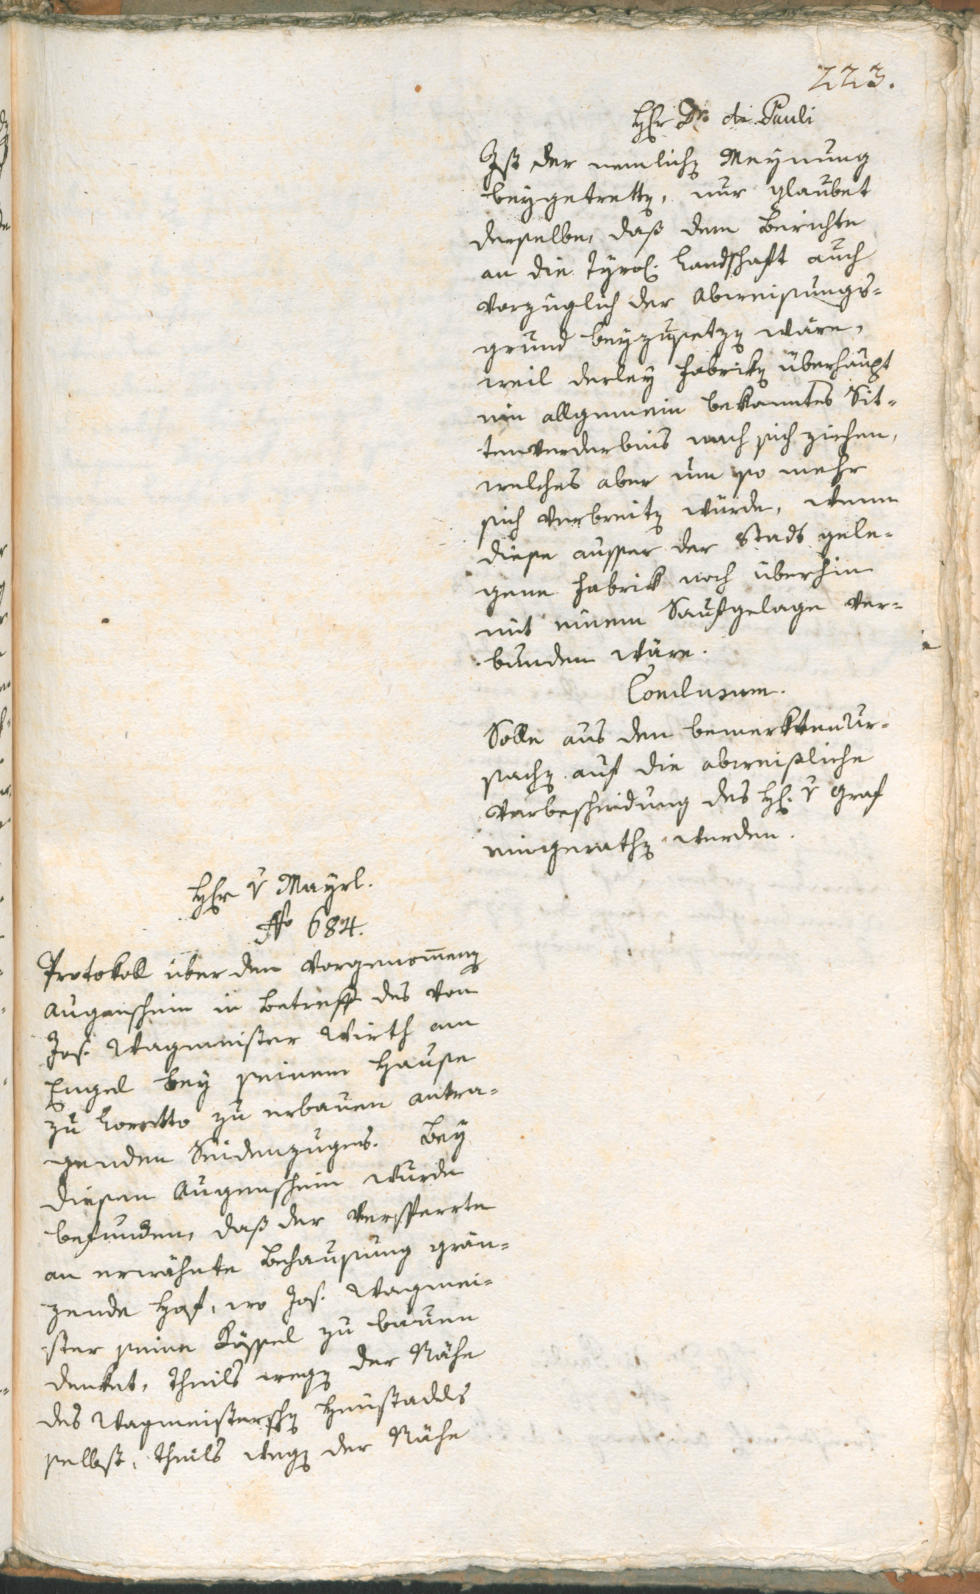 223.
H̅r Dr. de Pauli
Ist der nemlichen Meynung
beygetretten, nur glaubet
derselbe, daß dem Berichte
an die Tyrol. Landschaft auch
vorzüglich der Abweisungs-
grund beyzusetzen wäre,
weil derley Fabriken überhaupt
ein allgemein bekanntes Sit-
tenverderbnis nach sich ziehen,
welches aber um so mehr
sich verbreiten würde, wenn
diese ausser der Stadt gele-
gene Fabrik noch überhin
mit einem Saufgelage ver-
bunden wäre.
Conclusum.
Solle aus den bemerkten Ur-
sachen auf die abweißliche
Verbescheidung des H. v Graf
eingerathen werden.
H̅r v Mayrl.
No 684.
Protokoll über den vorgenommenen
Augenschein in Betreff des von
Jos. Wagmeister Wirth am
Engel bey seinem Hause
zu Loretto zu erbauen antra-
genden Seidenzuges. Bey
diesem Augenschein wurde
befunden, daß der versperrte
an erwähnte Behausung grän-
zende Hof, wo Jos. Wagmei-
ster seine Kössel zu bauen
denket, theils wegen der Nähe
des Wagmeisterschen Heustadls
selbst, theils wegen der Nähe